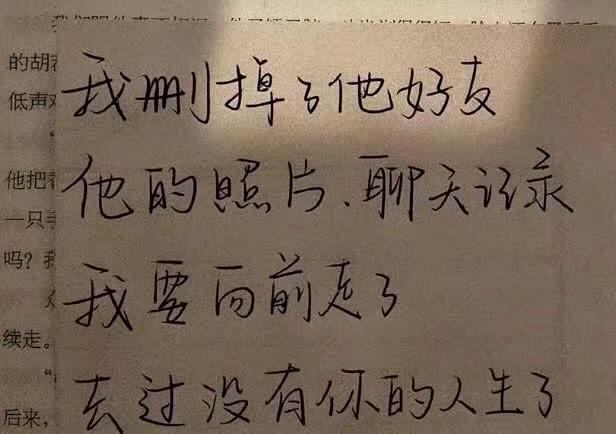 的胡
我删掉了他好友
低声
他把
他的照片、聊天记录
一只
吗？
我要向前走了
续走。
去过没有你的人生了
后来，